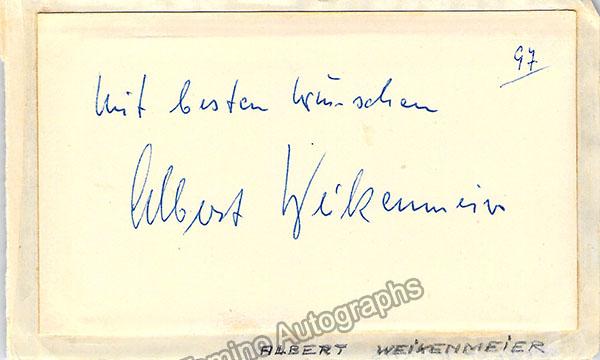 97
Mit besten Wünschen
Albert Weikenmeier
Tamino Autographs
ALBERT WEIKENMEIER